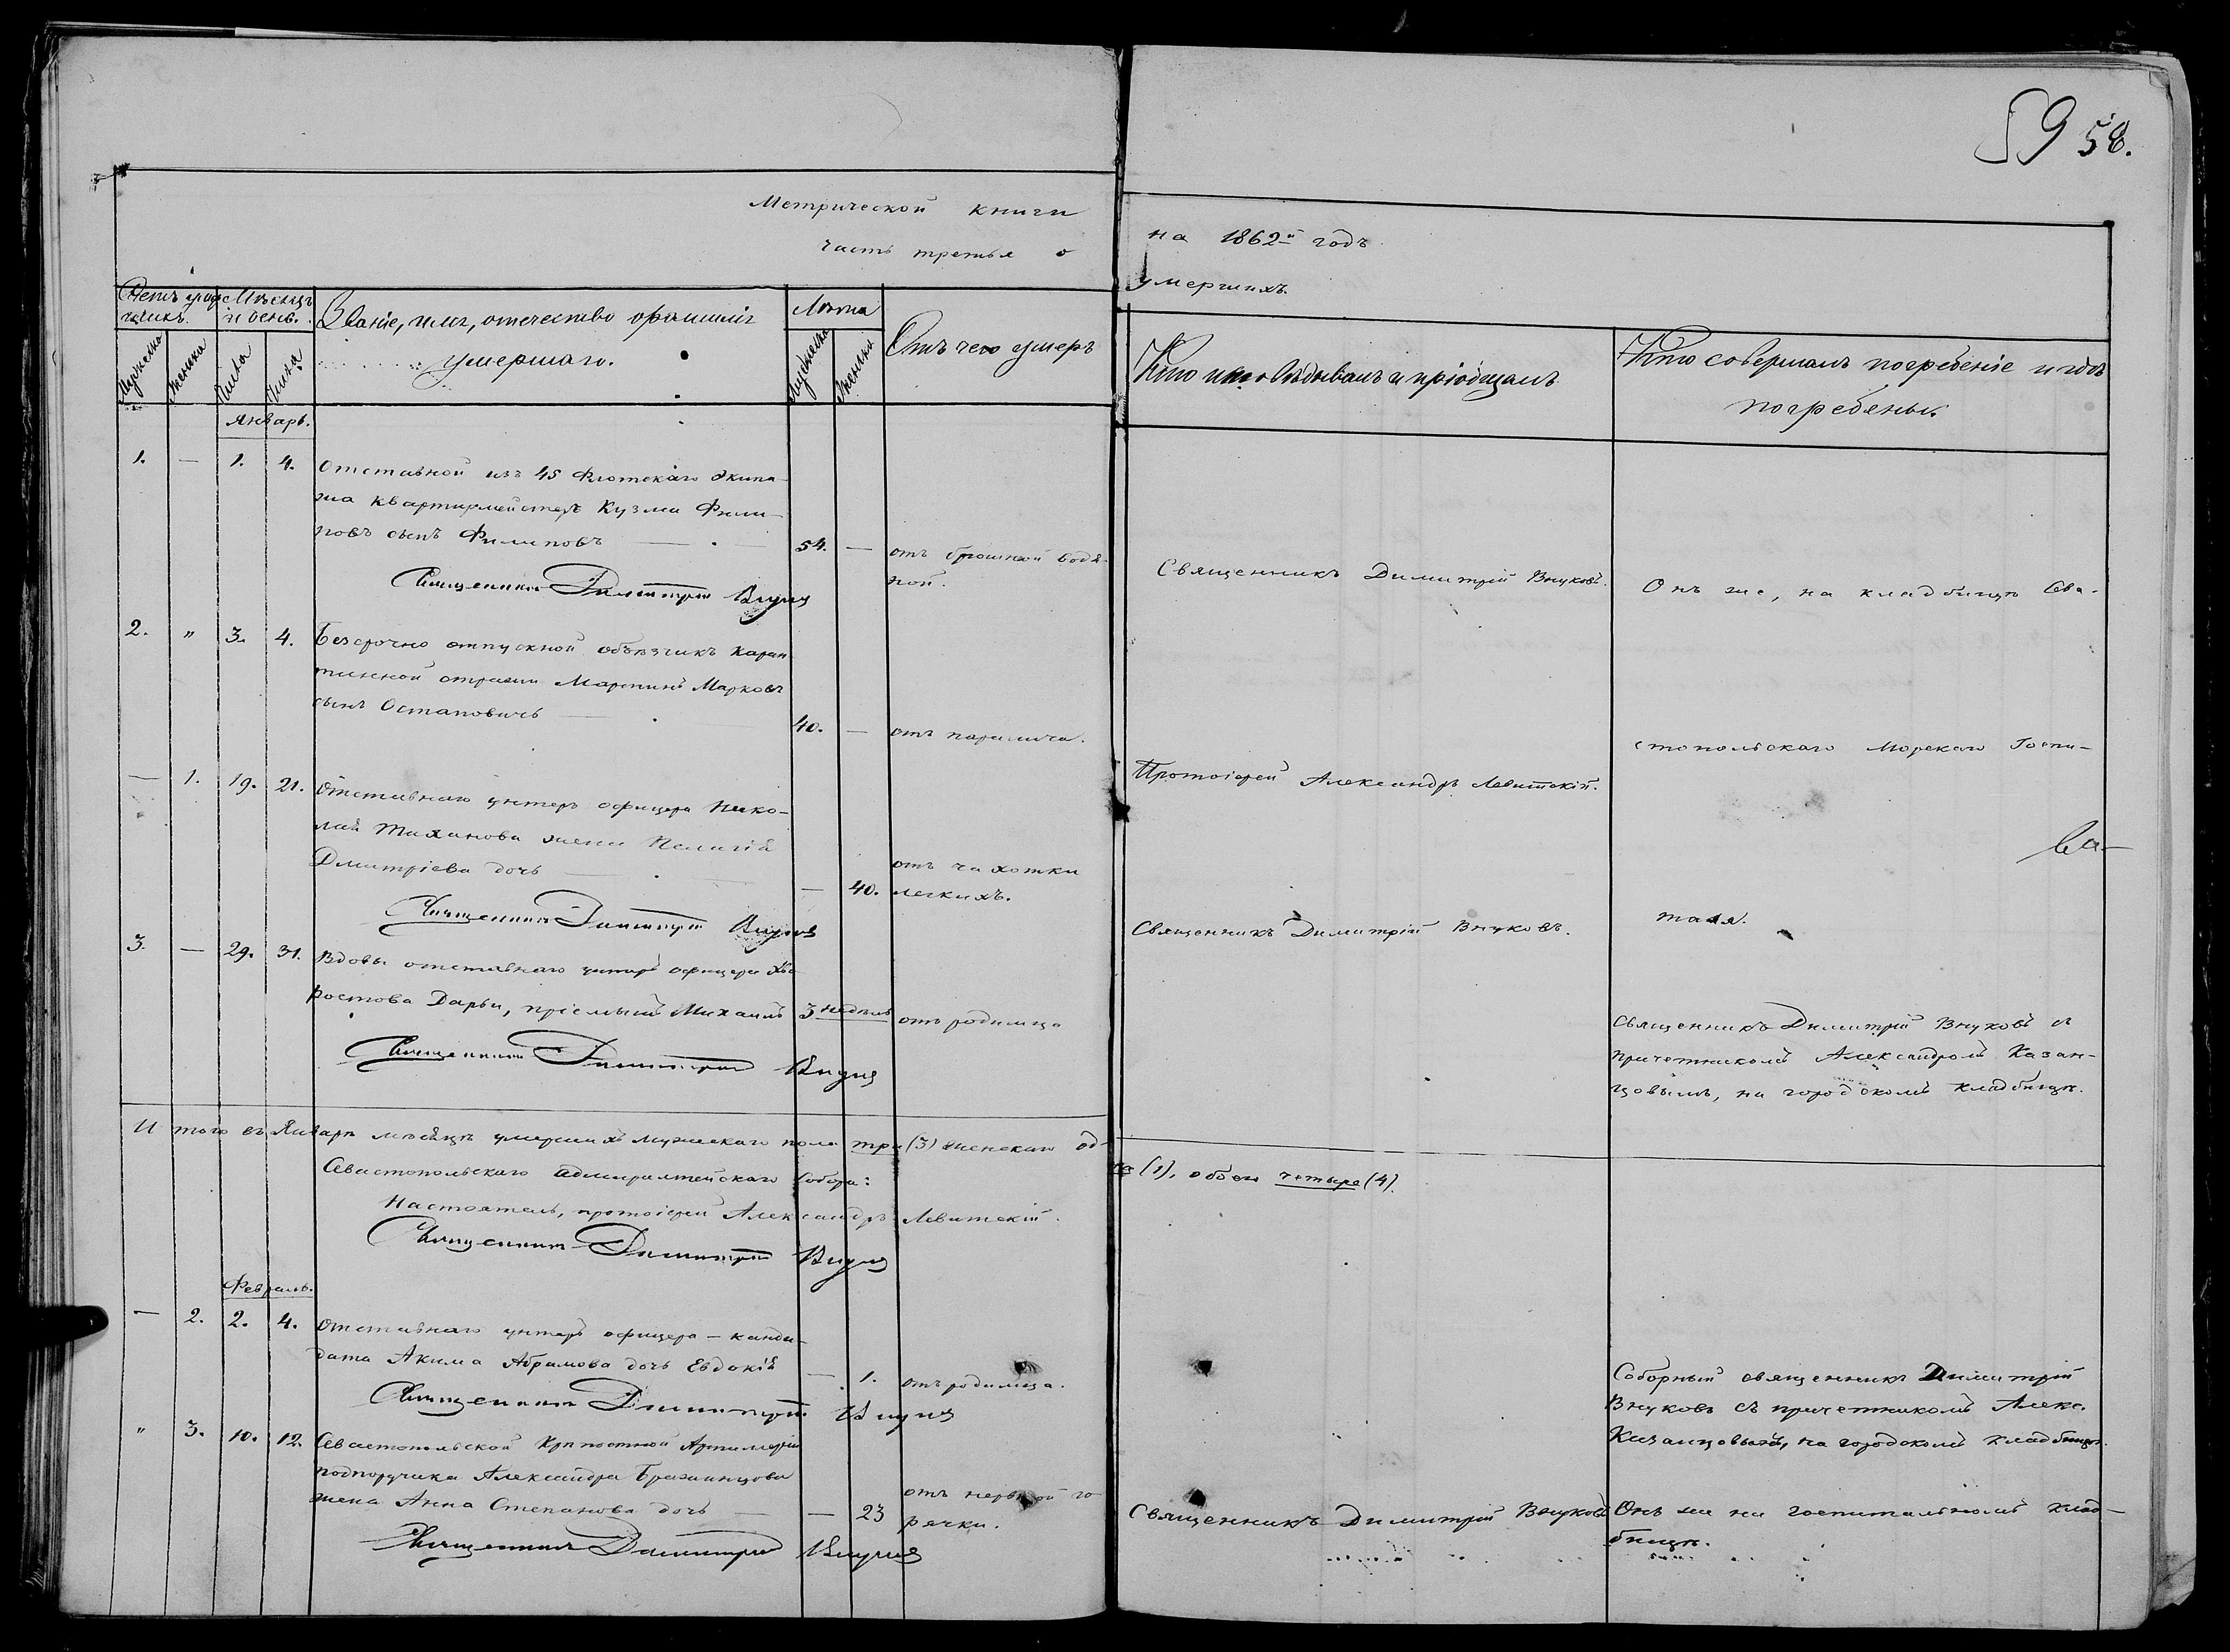 59 58.
Метрической книги на 1862й годъ
часть третья о умершихъ.
Счетъ умер
шихъ.
Мѣсяцъ
и день.
Званіе, имя, отечество и фамилія
умершаго.
Лѣта
Отъ чего умеръ
Кто исповѣдывалъ и пріобщалъ
Кто совершалъ погребеніе и гдѣ
погребены.
Мужеска
Женска
Числа
Числа
Мужеска
Женска
Январь.
1. — 1. 4. Отставной изъ 45 Флотскаго Экипа-
жа квартирмейстеръ Кузма Фили-
повъ сынъ Филиповъ — 54. — отъ брюшной водя-
ной.
Священникъ Димитрій Внуковъ.
Онъ же, на кладбищѣ Сева-
Священникъ Димитрій Внуковъ
2. " 3. 4. Безсрочно отпускной объѣзчикъ каран
тинной стражи Мартинъ Марковъ
сынъ Остаповичъ — 40. — отъ паралича.
Протоіерей Александръ Левитскій.
стопольскаго Морскаго Госпи-
— 1. 19. 21. Отставнаго унтеръ офицера Нико-
лая Тиханова жена Пелагія
Дмитріева дочь — — 40. отъ чахотки
легкихъ.
Священникъ Димитрій Внуковъ.
таля.
Священникъ Димитрій Внуковъ
3. — 29. 31. Вдовы отставнаго унтеръ офицера Хво
ростова Дарьи, пріемышъ Михаилъ 3 недѣль отъ родимца
Священникъ Димитрій Внуковъ съ
причетникомъ Александромъ Казан-
цовымъ, на городскомъ кладбищѣ.
Священникъ Димитрій Внуковъ
Итого въ Январѣ мѣсяцѣ умершихъ мужескаго пола три (3) женскаго од-
на (1), обоего четыре (4).
Севастопольскаго Адмиралтейскаго Собора:
Настоятель, протоіерей Александръ Левитскій.
Священникъ Димитрій Внуковъ
Февраль.
— 2. 2. 4. Отставнаго унтеръ офицера – канди-
дата Акима Абрамова дочь Евдокія — 1. отъ родимца.
Соборный священникъ Димитрій
Внуковъ съ причетникомъ Алекс.
Казанцовымъ, на городскомъ кладбищѣ.
Священникъ Димитрій Внуковъ
" 3. 10. 12. Севастопольской Крѣпостной Артиллеріи
подпоручика Александра Бражинцова
жена Анна Степанова дочь — — 23 отъ нервной го
рячки.
Священникъ Димитрій Внуковъ
Онъ же на госпитальномъ клад-
бищѣ.
Священникъ Димитрій Внуковъ